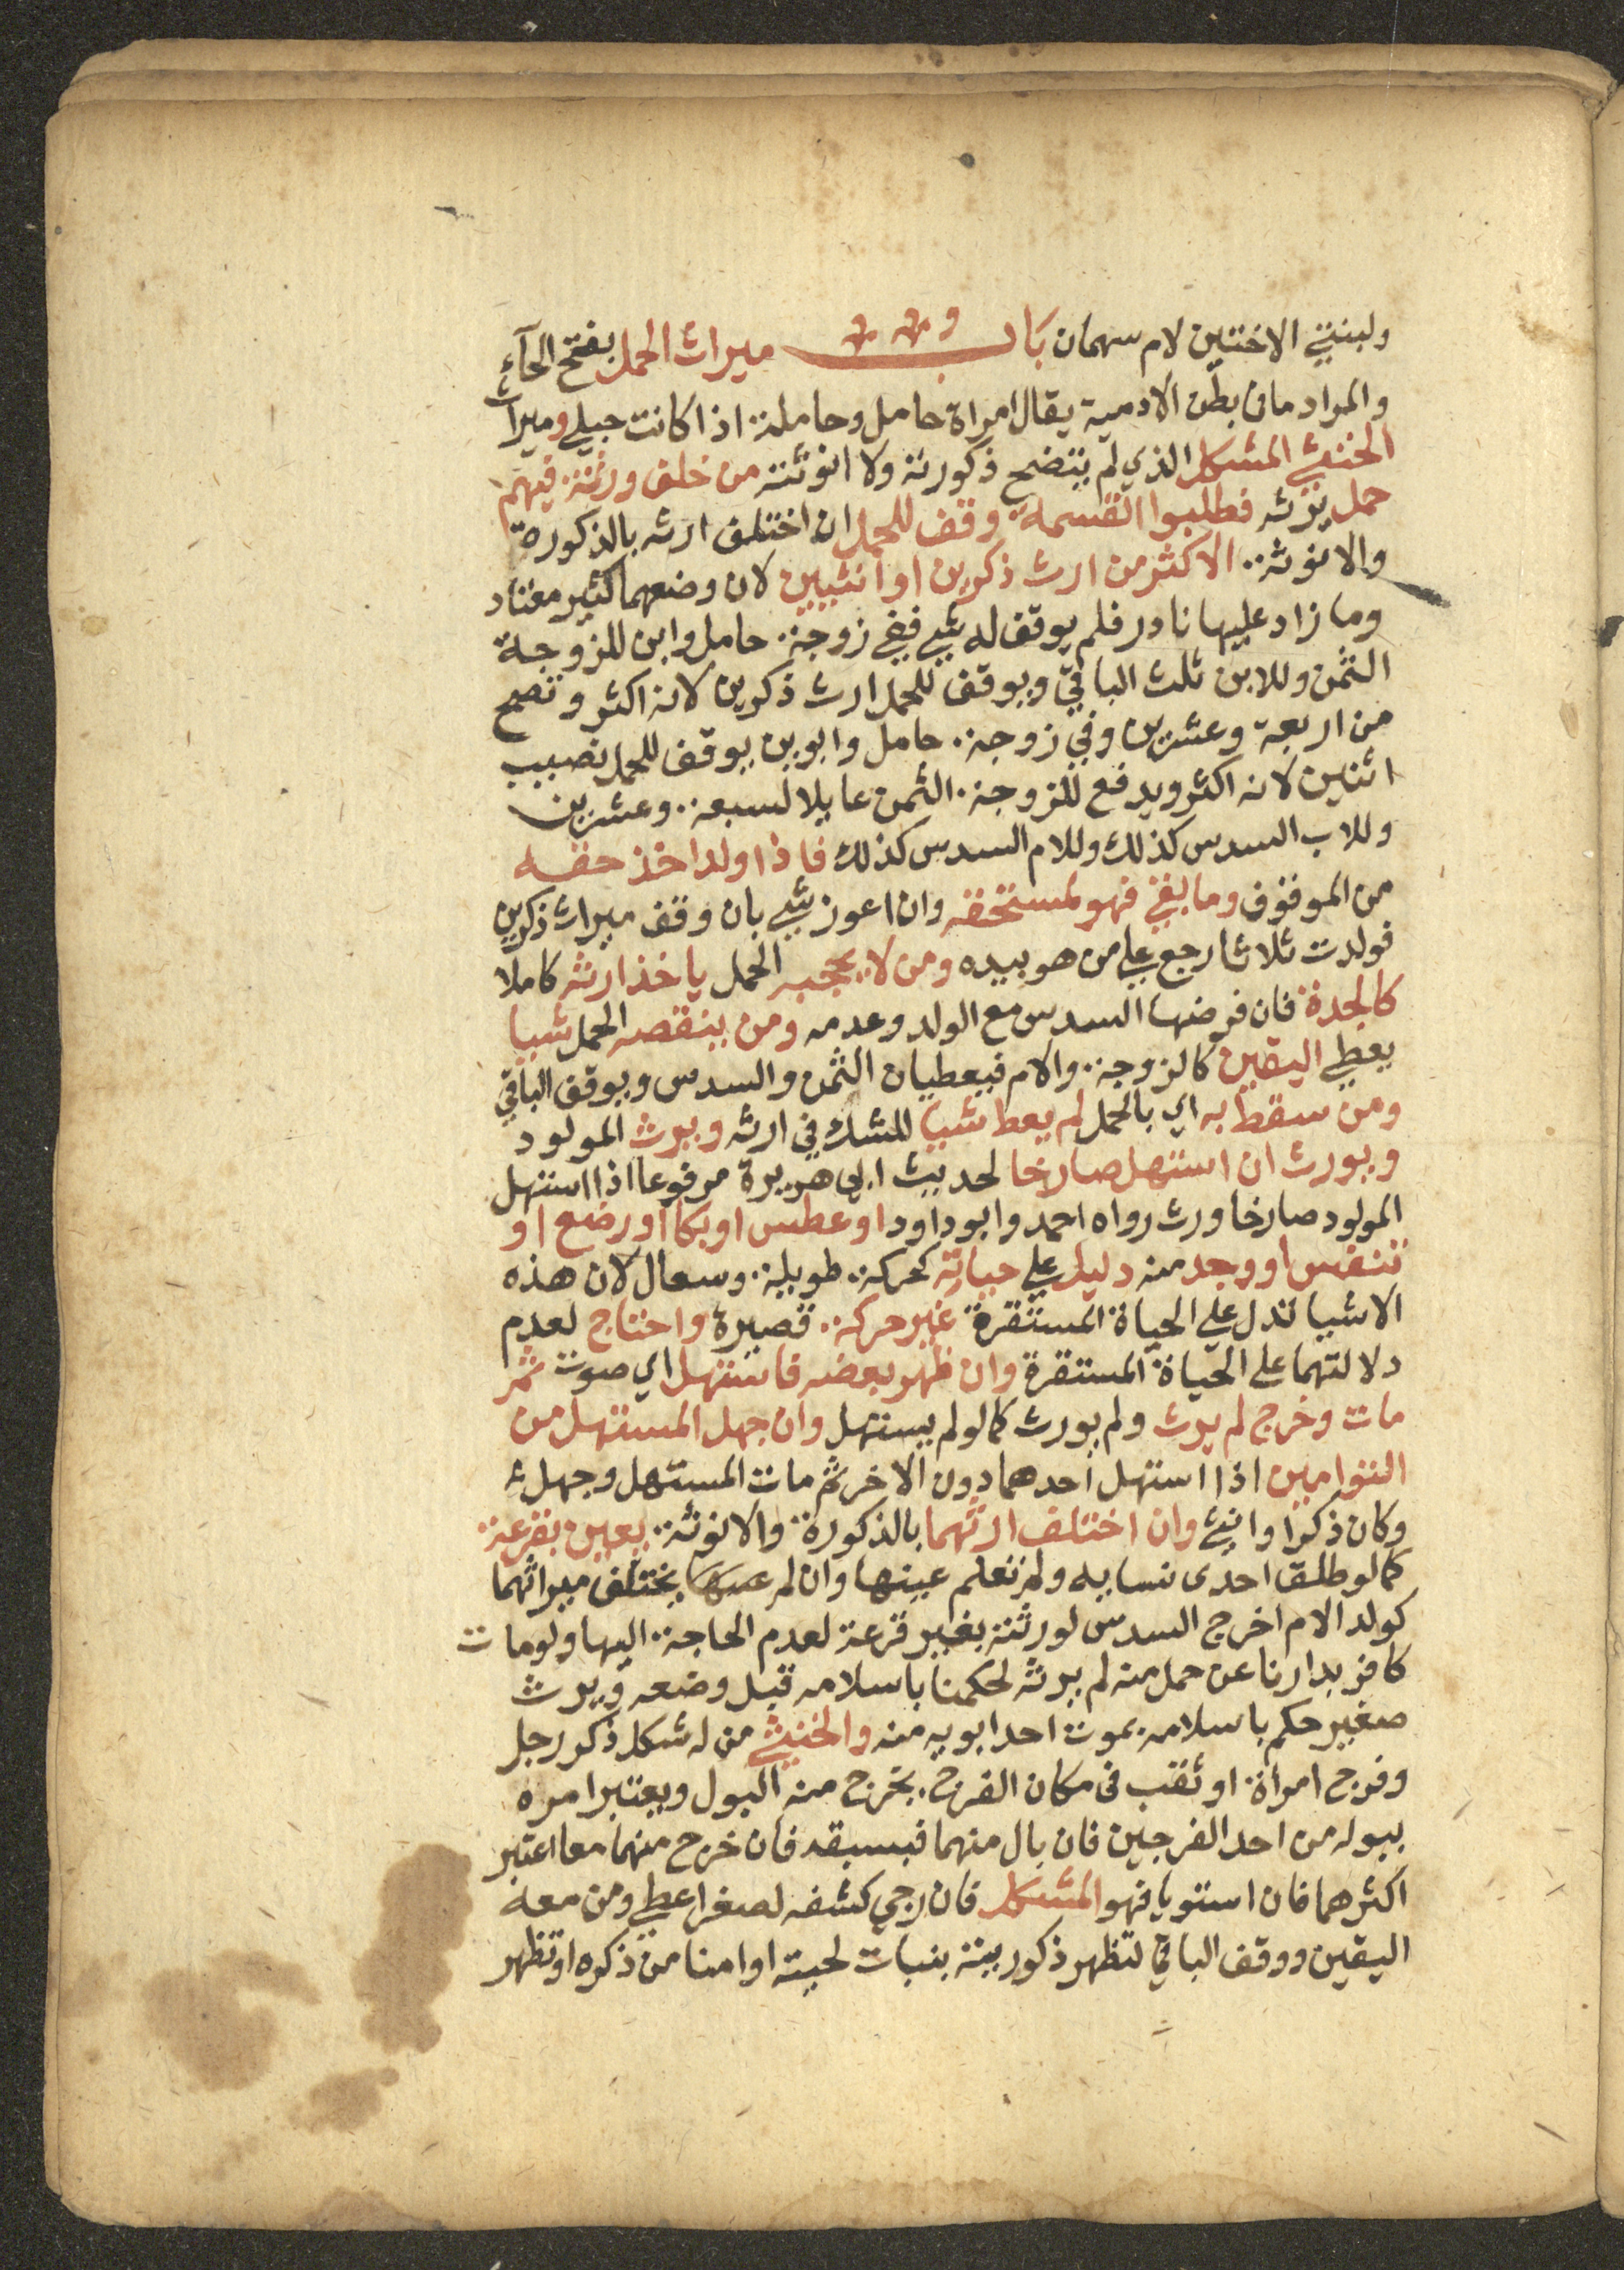 ولبنتي الاختين لام سهمان باب ميراث الحمل بفتح الحآء
والمراد ما في بطن الادمية يقال امراة حامل وحاملة اذا كانت حبلي وميراث
الخنثي المشكل الذي لم يتضح ذكورته ولا انوثته من خلف ورثة فيهم
حمل يرثه فطلبوا القسمة وقف للحمل ان اختلف ارثه بالذكورة
والانوثة الاكثر من ارث ذكرين او انثيين لان وضعهما كثير معتاد
وما زاد عليها نادر فلم يوقف له شي ففي زوجة حامل وابن للزوجة
الثمن وللابن ثلث الباقي ويوقف للحمل ارث ذكرين لانه اكثر وتصح
من اربعة وعشرين وفي زوجة حامل وابوين يوقف للحمل نصيب
اثنين لانه اكثر ويدفع للزوجة الثمن عايلا لسبعة وعشرين
وللاب السدس كذلك وللام السدس كذلك فاذا ولد اخذ حقه
من الموقوف وما بقي فهو لمستحقه وان اعوز شي بان وقف ميراث ذكرين
فولدت ثلاثا رجع علي من هو بيده ومن لا يحجبه الحمل ياخذ ارثه كاملا
كالجدة فان فرضها السدس مع الولد وعدمه ومن ينقصه الحمل شيا
يعطي اليقين كالزوجة والام فيعطيان الثمن والسدس ويوقف الباقي
ومن سقط به اي بالحمل لم يعط شيا للشك في ارثه ويرث المولود
ويورث ان استهل صارخا لحديث ابي هريرة مرفوعا اذا استهل
المولود صارخا ورث رواه احمد وابو داود او عطس او بكا او رضع او
تنفس او وجد منه دليل علي حياته كحركة طويلة وسعال لان هذه
الاشيا تدل علي الحياة المستقرة غير حركة قصيرة واختلاج لعدم
دلالتهما علي الحياة المستقرة وان ظهر بعضه فاستهل اي صوت ثم
مات وخرج لم يرث ولم يورث كما لو لم يستهل وان جهل المستهل من
التوامين اذا استهل احدهما دون الاخر ثم مات المستهل وجهل
وكان ذكرا وانثي وان اختلف ارثهما بالذكورة والانوثة يعين بقرعة
كما لو طلق احدى نسايه ولم تعلم عينها وان لم يختلف ميراثهما
كولد الام اخرج السدس لورثته بغير قرعة لعدم الحاجة اليها ولو مات
كافر بدارنا عن حمل منه لم يرثه لحكمنا باسلامه قبل وضعه ويرث
صغير حكم باسلامه بموت احد ابويه منه والخنثي من له شكل ذكر رجل
وفرج امراة او ثقب في مكان الفرج يخرج منه البول ويعتبر امره
ببوله من احد الفرجين فان بال منهما فبسبقه فان خرج منهما معا اعتبر
اكثرهما فان استويا فهو المشكل فان رجي كشفه لصغر اعطي ومن معه
اليقين ووقف الباقي لتظهر ذكوريته بنبات لحيته او امنا من ذكره او تظهر